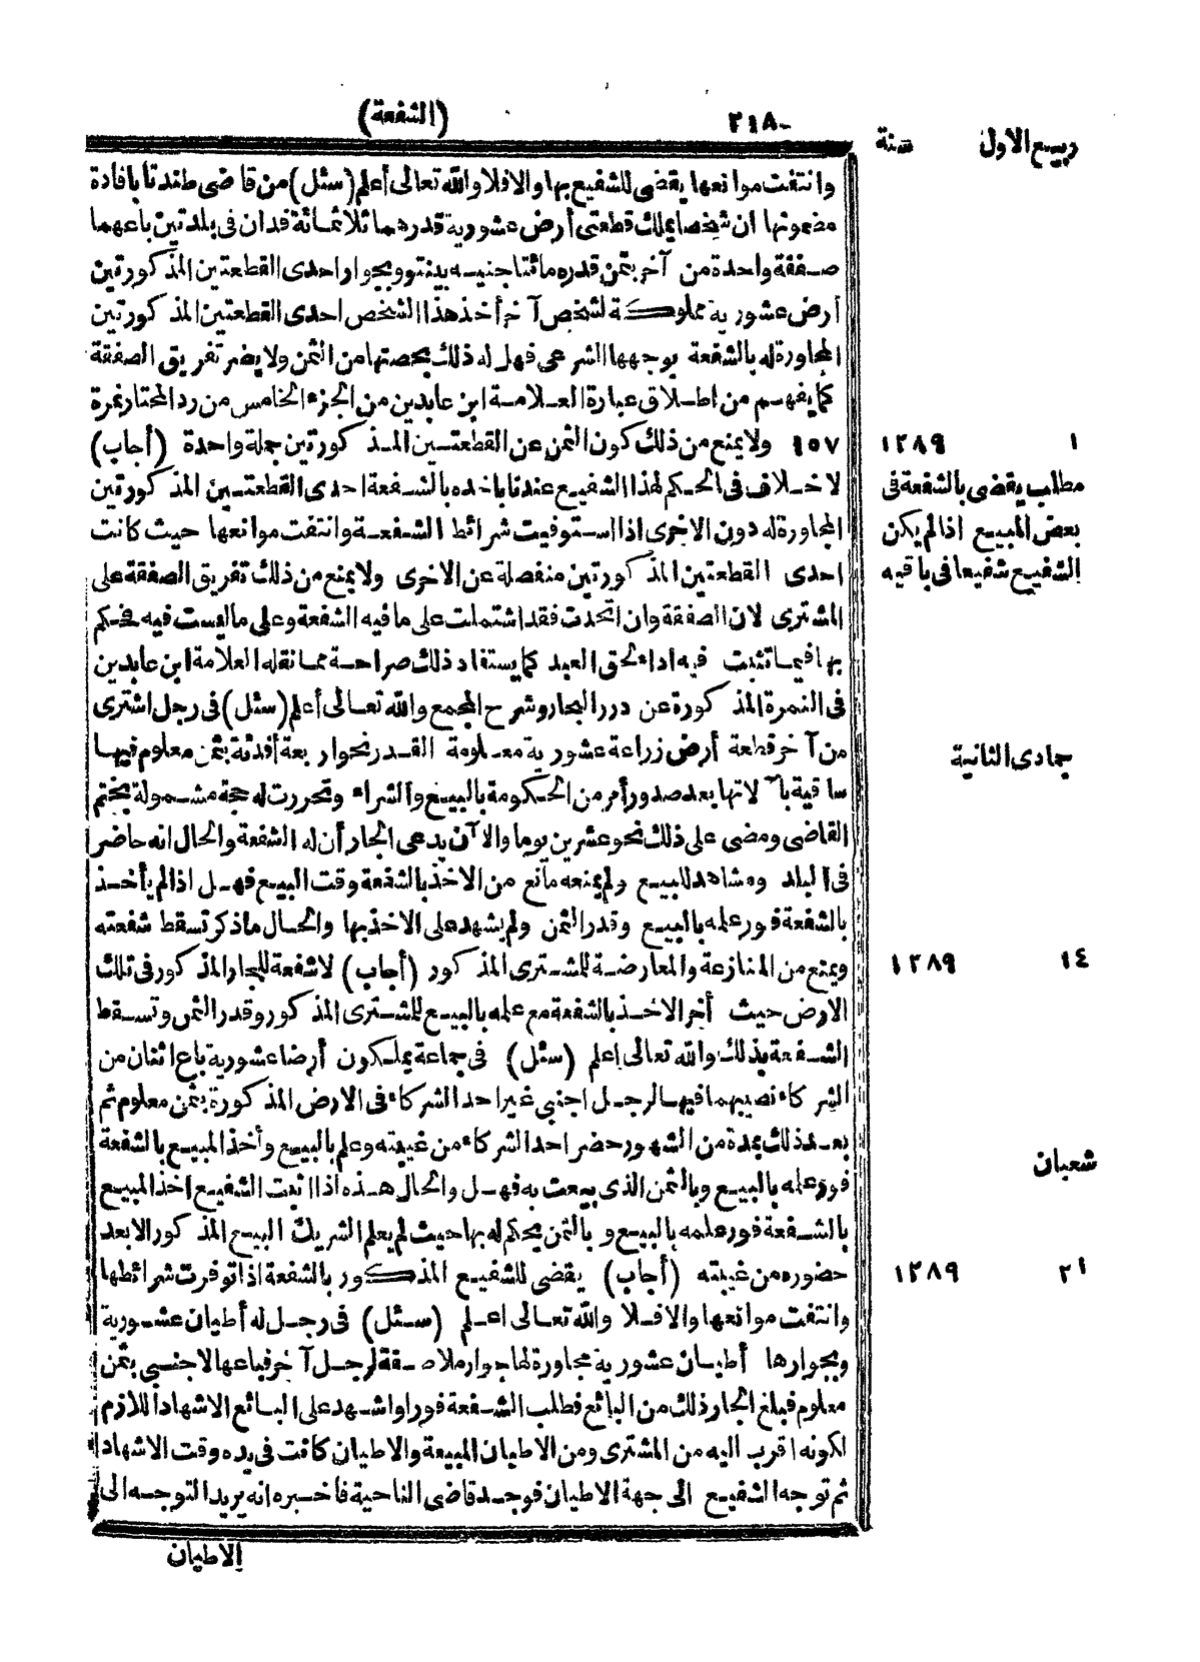 ربيع الاول سنة
٢١٨ (الشفعة)
وانتفت موانعها يقضى للشفيع بها والا فلا والله تعالى أعلم (سئل) من قاضى طندتا بافادة
مضمونها ان شخصا يملك قطعتى أرض عشورية قدرهما ثلاثمائة فدان فى بلدتين باعهما
صفقة واحدة من آخر بثمن قدره مائتا جنيه بينتو وبجوار احدى القطعتين المذكورتين
أرض عشورية مملوكة لشخص آخر أخذ هذا الشخص احدى القطعتين المذكورتين
المجاورة له بالشفعة بوجهها الشرعى فهل له ذلك بحصتها من الثمن ولا يضر تفريق الصفقة
كما يفهم من اطلاق عبارة العلامة ابن عابدين من الجزء الخامس من رد المحتار نمرة
١٥٧ ولا يمنع من ذلك كون الثمن عن القطعتين المذكورتين جملة واحدة (أجاب)
١ ١٢٨٩
لاخلاف فى الحكم لهذا الشفيع عندنا باخذه بالشفعة احدى القطعتين المذكورتين
مطلب يقضى بالشفعة فى
المجاورة له دون الاخرى اذا استوفيت شرائط الشفعة وانتفت موانعها حيث كانت
بعض المبيع اذا لم يكن
احدى القطعتين المذكورتين منفصلة عن الاخرى ولا يمنع من ذلك تفريق الصفقة على
الشفيع شفيعا فى باقيه
المشترى لان الصفقة وان اتحدت فقد اشتملت على ما فيه الشفعة وعلى ما ليست فيه فحكم
بها فيما تثبت فيه اداء لحق العبد كما يستفاد ذلك صراحة مما نقله العلامة ابن عابدين
فى النمرة المذكورة عن درر البحار وشرح المجمع والله تعالى أعلم (سئل) فى رجل اشترى
من آخر قطعة أرض زراعة عشورية معلومة القدر نحو اربعة أفدنة بثمن معلوم فيها
جمادى الثانية
ساقية بآلاتها بعد صدور أمر من الحكومة بالبيع والشراء وتحررت له حجة مشمولة بختم
القاضى ومضى على ذلك نحو عشرين يوما والآن يدعى الجار أن له الشفعة والحال انه حاضر
فى البلد ومشاهد للبيع ولم يمنعه مانع من الاخذ بالشفعة وقت البيع فهل اذا لم يأخذ
بالشفعة فور علمه بالبيع وقدر الثمن ولم يشهد على الاخذ بها والحال ماذكر تسقط شفعته
ويمنع من المنازعة والمعارضة للمشترى المذكور (أجاب) لاشفعة للجار المذكور فى تلك
١٤ ١٢٨٩
الارض حيث أخر الاخذ بالشفعة مع علمه بالبيع للمشترى المذكور وقدر الثمن وتسقط
الشفعة بذلك والله تعالى اعلم (سئل) فى جماعة يملكون أرضا عشورية باع اثنان من
الشركاء نصيبهما فيها لرجل اجنبى غير احد الشركاء فى الارض المذكورة بثمن معلوم ثم
بعد ذلك بمدة من الشهور حضر احد الشركاء من غيبته وعلم بالبيع وأخذ المبيع بالشفعة
شعبان
فور علمه بالبيع وبالثمن الذى بيعت به فهل والحال هذه اذا اثبت الشفيع اخذ المبيع
بالشفعة فور علمه بالبيع وبالثمن يحكم له بها حيث لم يعلم الشريك البيع المذكور الا بعد
حضوره من غيبته (أجاب) يقضى للشفيع المذكور بالشفعة اذا توفرت شرائطها
٢١ ١٢٨٩
وانتفت موانعها والا فلا والله تعالى اعلم (سئل) فى رجل له أطيان عشورية
وبجوارها أطيان عشورية مجاورة لها جوار ملاصقة لرجل آخر فباعها لاجنبى بثمن
معلوم فبلغ الجار ذلك من البائع فطلب الشفعة فورا واشهد على البائع الاشهاد اللازم
لكونه اقرب اليه من المشترى ومن الاطيان المبيعة والاطيان كانت فى يده وقت الاشهاد
ثم توجه الشفيع الى جهة الاطيان فوجد قاضى الناحية فأخبره انه يريد التوجه الى
الاطيان